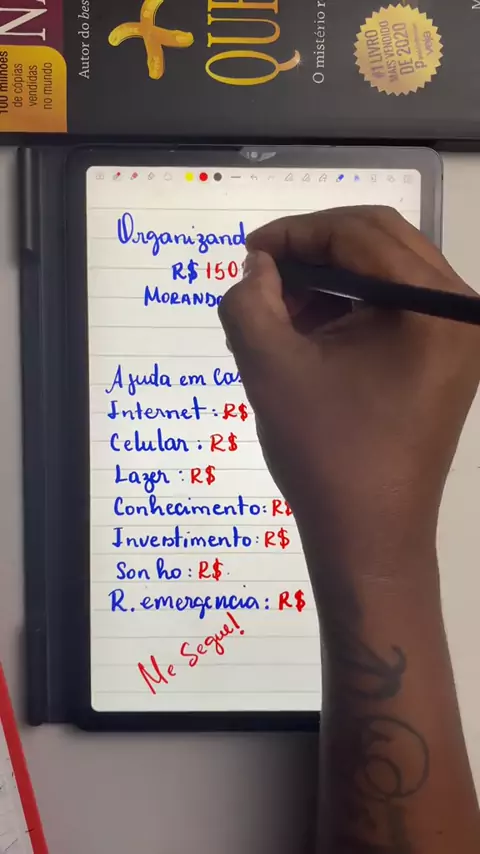 100 milhões
de cópias
vendidas
no mundo
Autor do bes
QU
O mistério
#1 LIVRO
MAIS VENDIDO
DE 2020
Organizand
R$ 150
MORANDO
Ajuda em Cas
Internet: R$
Celular: R$
Lazer: R$
Conhecimento: R$
Investimento: R$
Sonho: R$
R. emergencia: R$
Me Segue!